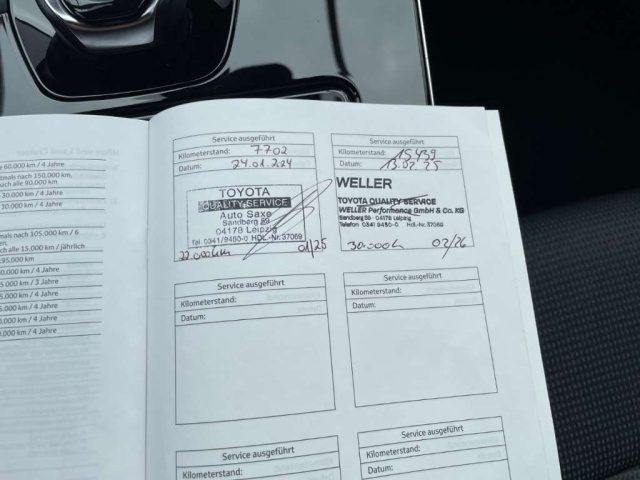 e 60.000 km / 4 Jahre
mals nach 150.000 km,
uch alle 90.000 km
30.000 km / 4 Jahre
30.000 km / 4 Jahre
mals nach 105.000 km / 6
uch alle 15.000 km / jährlich
95.000 km
0.000 km / 4 Jahre
5.000 km / 3 Jahre
5.000 km / 4 Jahre
5.000 km / 4 Jahre
0.000 km / 4 Jahre
0.000 km / 4 Jahre
Service ausgeführt
Kilometerstand: 7702
Datum: 24.01.224
TOYOTA
QUALITY SERVICE
Auto Saxe
Sandberg 59
04178 Leipzig
Tel. 0341/9450-0 HDL.-Nr. 37069
22.000km 01/25
Service ausgeführt
Kilometerstand: 15439
Datum: 13.02.25
WELLER
TOYOTA QUALITY SERVICE
WELLER Performance GmbH & Co. KG
Sandberg 59 · 04178 Leipzig
Telefon 0341 9450-0 HdL-Nr. 37069
30.000k 02/26
Service ausgeführt
Kilometerstand:
Datum:
Service ausgeführt
Kilometerstand:
Datum:
Service ausgeführt
Kilometerstand:
Datum:
Service ausgeführt
Kilometerstand:
Datum: